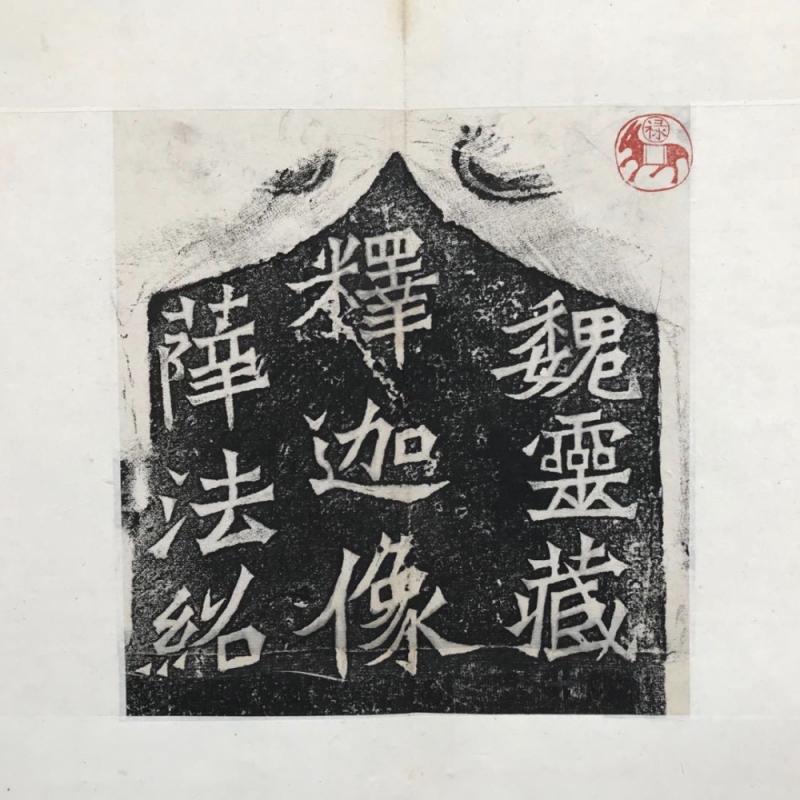 魏靈藏
釋迦像
薛法紹
禄